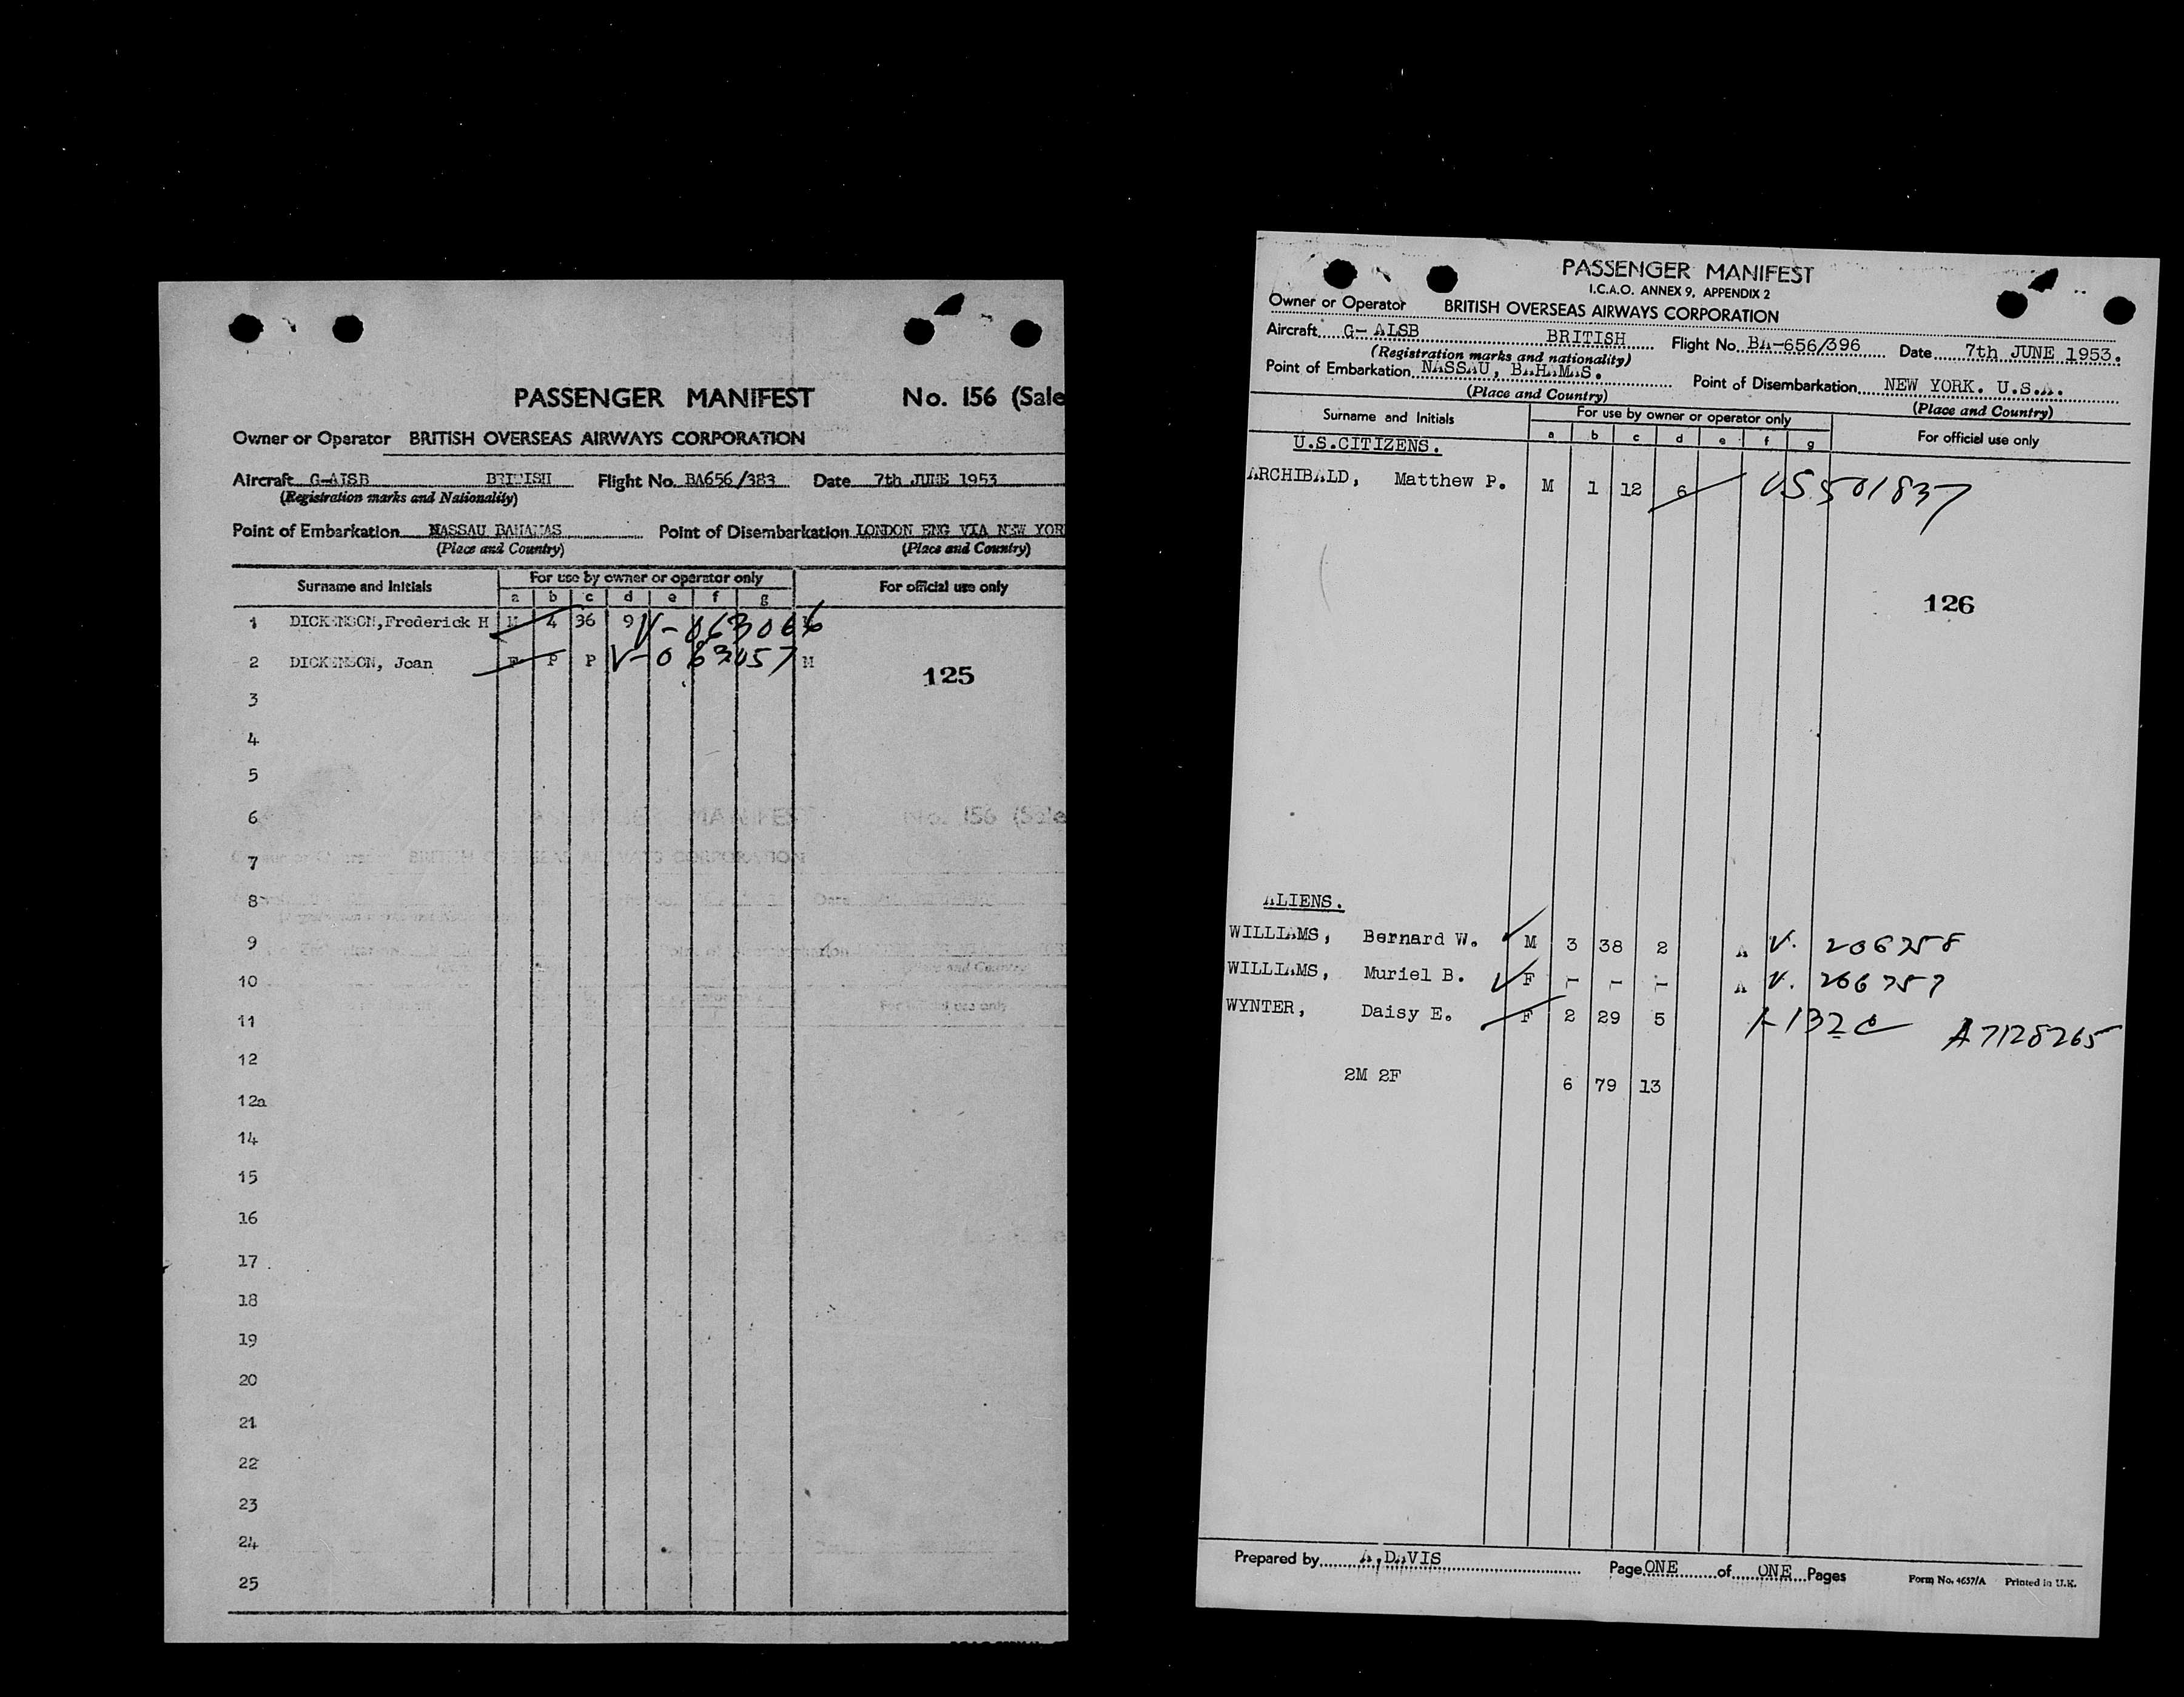 PASSENGER MANIFEST No. 156 (Sale
Owner or Operator BRITISH OVERSEAS AIRWAYS CORPORATION
Aircraft G-AISB BRITISH Flight No. BA656/383 Date 7th JUNE 1953
(Registration marks and Nationality)
Point of Embarkation NASSAU BAHAMAS Point of Disembarkation LONDON ENG VIA NEW YOR
(Place and Country) (Place and Country)
Surname and Initials For use by owner or operator only For official use only
a b c d e f g
1 DICKENSON, Frederick H M 4 36 9 V-063066
2 DICKENSON, Joan F P P V-063057 M
125
3
4
5
6
7
8
9
10
11
12
12a
14
15
16
17
18
19
20
21
22
23
24
25
PASSENGER MANIFEST
I.C.A.O. ANNEX 9, APPENDIX 2
Owner or Operator BRITISH OVERSEAS AIRWAYS CORPORATION
Aircraft G-ALSB BRITISH Flight No. BA-656/396 Date 7th JUNE 1953.
(Registration marks and nationality)
Point of Embarkation NASSAU, BAHAMAS. Point of Disembarkation NEW YORK. U.S.A.
(Place and Country) (Place and Country)
Surname and Initials For use by owner or operator only For official use only
a b c d e f g
U.S.CITIZENS.
ARCHIBALD, Matthew P. M 1 12 6 US 501837
126
ALIENS.
WILLIAMS, Bernard W. M 3 38 2 A V. 206758
WILLIAMS, Muriel B. F - - - A V. 206757
WYNTER, Daisy E. F 2 29 5 I-132 A7128265
2M 2F 6 79 13
Prepared by A.DAVIS Page ONE of ONE Pages Form No. 4637/A Printed in U.K.